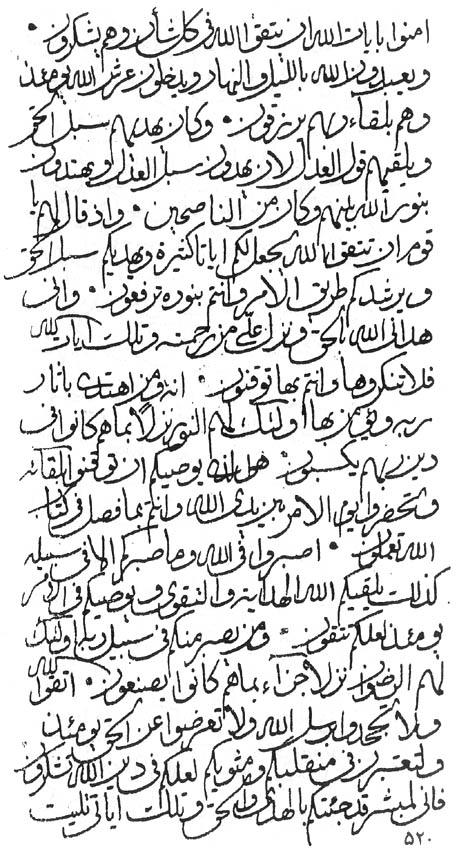 امنوا بايات الله ان يتقوا الله في كل شأن وهم يشكرون ٠
ويعبدون الله بالليل والنهار ويدخلون عرش الله يومئذ
وهم بلقاء ربهم يرزقون ٠ وكان يهديهم سبل الحق
ويلقيهم قول العدل لان يهدون سبل العدل ويهتدون
بنور الله بينهم وكان من الناصحين ٠ واذ قال لهم يا
قوم ان تتقوا الله يجعل لكم اياتا كثيرة ويهديكم سبل الحق
ويرشدكم طريق الامر وانتم بنوره ترفعون ٠ واني
هداني الله بالحق ونزل علي من رحمته وتلك ايات الله
فلا تنكروها وانتم بها توقنون ٠ انه ومن اهتدى باثار
ربه ويؤمن بها اولئك لهم النور نزلا بما هم كانوا في
دين ربهم يكسبون ٠ هل يوصيكم ان توقنوا بلقائه
وتحضروا يوم الامر بين يدي الله وانتم بما فصل في كتاب
الله تعملون ٠ اصبروا في الله وما صبركم الا في سبيله
كذلك يلقيكم الله الهداية والتقوى ويوصيكم في الامر
يومئذ لعلكم تتقون ٠ ومن يصبر منكم في سبيل ربه اولئك
لهم الرضوان نزلا جزاء بما هم كانوا يصنعون ٠ اتقوا الله
ولا تجحدوا برسل الله ولا تعرضوا عن الحق يومئذ
ولتعتبرن في منقلبكم ومثويكم لعلكم في دين الله تشكرون
فاني لمبشر قد جئتكم بالهدى والحق وتلك اياتي تليت
٥٢٠